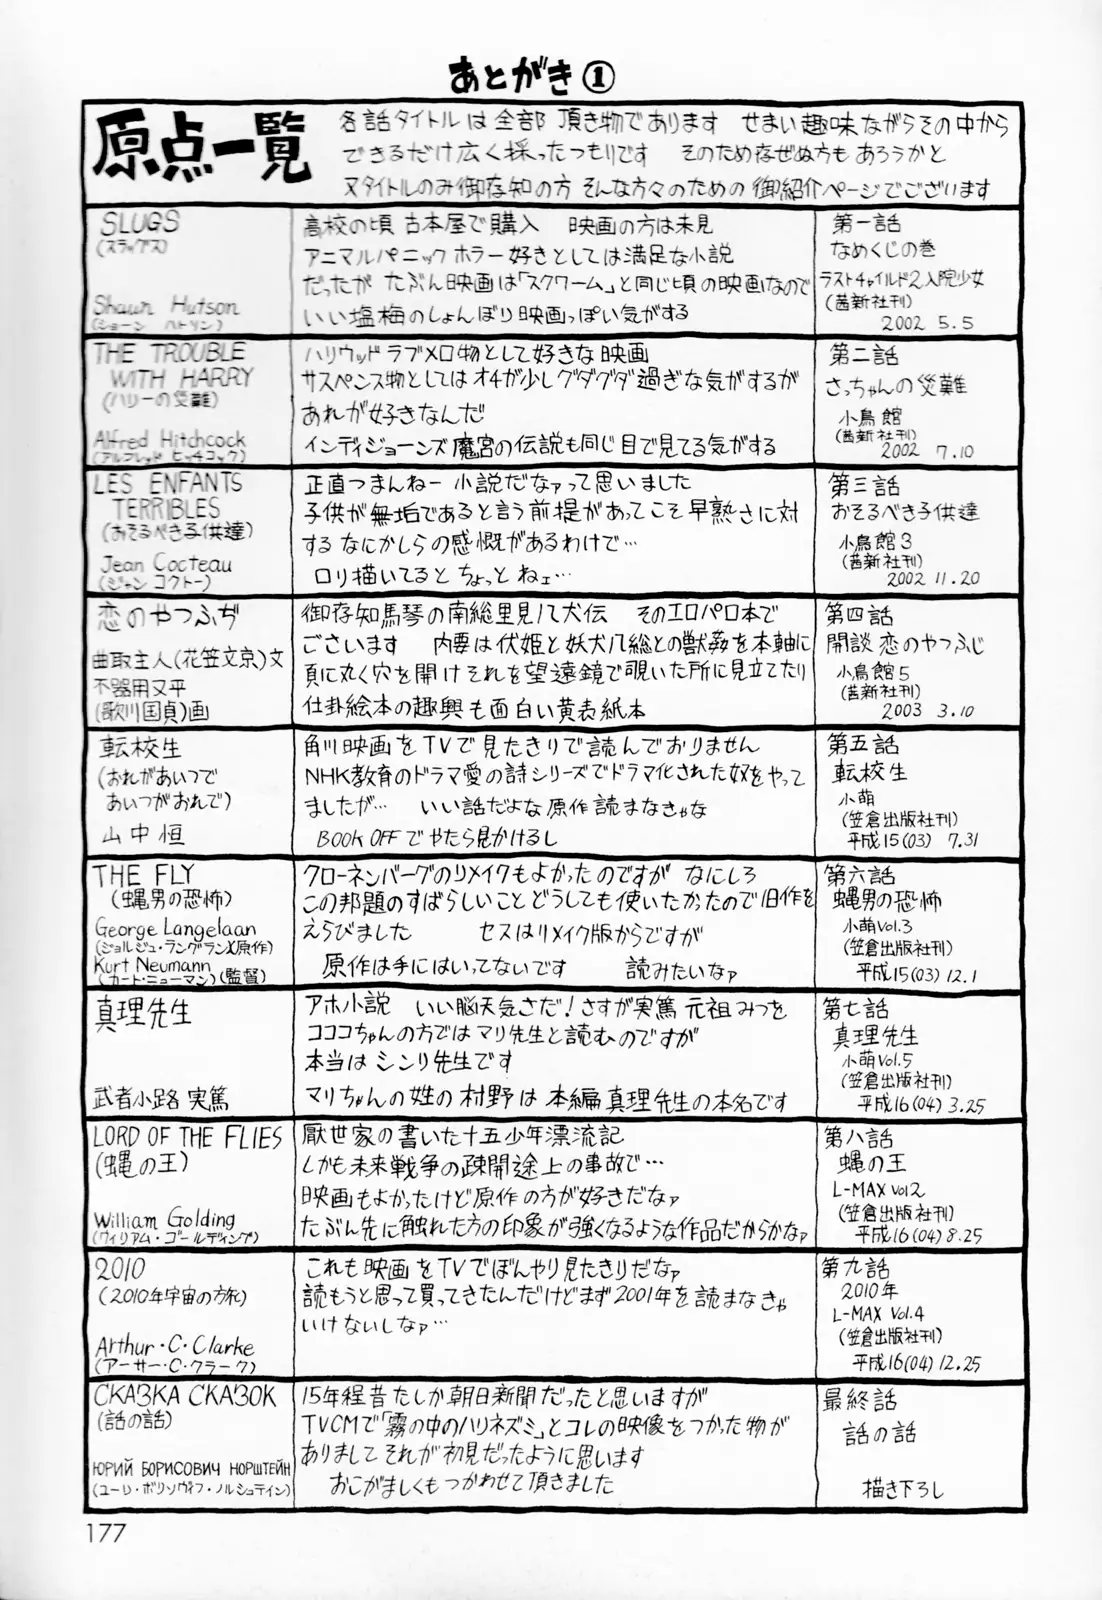 あとがき①
原点一覧
各話タイトルは全部 頂き物であります せまい趣味ながらその中から
できるだけ広く採ったつもりです そのため存ぜぬ方もあろうかと
又タイトルのみ御存知の方 そんな方々のための 御紹介ページでございます
SLUGS
(スラッグス)
Shaun Hutson
(ショーン ハトソン)
高校の頃 古本屋で購入 映画の方は未見
アニマルパニックホラー好きとしては満足な小説
だったが たぶん映画は「スクワーム」と同じ頃の映画なので
いい塩梅のしょんぼり映画っぽい気がする
第一話
なめくじの巻
ラストチャイルド2入院少女
(茜新社刊)
2002 5.5
THE TROUBLE
WITH HARRY
(ハリーの災難)
Alfred Hitchcock
(アルフレッド ヒッチコック)
ハリウッドラブメロ物として好きな映画
サスペンス物としてはオチが少しグダグダ過ぎな気がするが
あれが好きなんだ
インディジョーンズ魔宮の伝説も同じ目で見てる気がする
第二話
さっちゃんの災難
小鳥館
(茜新社刊)
2002 7.10
LES ENFANTS
TERRIBLES
(おそるべき子供達)
Jean Cocteau
(ジャン コクトー)
正直つまんねー小説だなァって思いました
子供が無垢であると言う前提があってこそ早熟さに対
するなにかしらの感慨があるわけで…
ロリ描いてるとちょっとねェ…
第三話
おそるべき子供達
小鳥館3
(茜新社刊)
2002 11.20
恋のやつふぢ
曲取主人(花笠文京)文
不器用又平
(歌川国貞)画
御存知馬琴の南総里見八犬伝 そのエロパロ本で
ございます 内要は伏姫と妖犬八総との獣姦を本軸に
頁に丸く穴を開けそれを望遠鏡で覗いた所に見立てたり
仕掛絵本の趣興も面白い黄表紙本
第四話
開談 恋のやつふじ
小鳥館5
(茜新社刊)
2003 3.10
転校生
(おれがあいつで
あいつがおれで)
山中恒
角川映画をTVで見たきりで読んでおりません
NHK教育のドラマ愛の詩シリーズでドラマ化された奴をやって
ましたが… いい話だよな原作読まなきゃな
BOOK OFFでやたら見かけるし
第五話
転校生
小萌
(笠倉出版社刊)
平成15(03) 7.31
THE FLY
(蝿男の恐怖)
George Langelaan
(ジョルジュ・ラングラン)(原作)
Kurt Neumann
(カート・ニューマン)(監督)
クローネンバーグのリメイクもよかったのですが なにしろ
この邦題のすばらしいことどうしても使いたかったので旧作を
えらびました セスはリメイク版からですが
原作は手にはいってないです 読みたいなァ
第六話
蝿男の恐怖
小萌Vol.3
(笠倉出版社刊)
平成15(03) 12.1
真理先生
武者小路実篤
アホ小説 いい脳天気さだ!さすが実篤 元祖みつを
コココちゃんの方ではマリ先生と読むのですが
本当はシンリ先生です
マリちゃんの姓の村野は本編真理先生の本名です
第七話
真理先生
小萌Vol.5
(笠倉出版社刊)
平成16(04) 3.25
LORD OF THE FLIES
(蝿の王)
William Golding
(ウィリアム・ゴールディング)
厭世家の書いた十五少年漂流記
しかも未来戦争の疎開途上の事故で…
映画もよかったけど原作の方が好きだなァ
たぶん先に触れた方の印象が強くなるような作品だからかなァ
第八話
蝿の王
L-MAX Vol2
(笠倉出版社刊)
平成16(04) 8.25
2010
(2010年宇宙の旅)
Arthur・C・Clarke
(アーサー・C・クラーク)
これも映画をTVでぼんやり見たきりだなァ
読もうと思って買ってきたんだけどまず2001年を読まなきゃ
いけないしなァ…
第九話
2010年
L-MAX Vol.4
(笠倉出版社刊)
平成16(04) 12.25
СКАЗКА СКАЗОК
(話の話)
ЮРИЙ БОРИСОВИЧ НОРШТЕЙН
(ユーリ・ボリソヴィチ・ノルシュテイン)
15年程昔たしか朝日新聞だったと思いますが
TVCMで「霧の中のハリネズミ」とコレの映像をつかった物が
ありまして それが初見だったように思います
おこがましくもつかわせて頂きました
最終話
話の話
描き下ろし
177